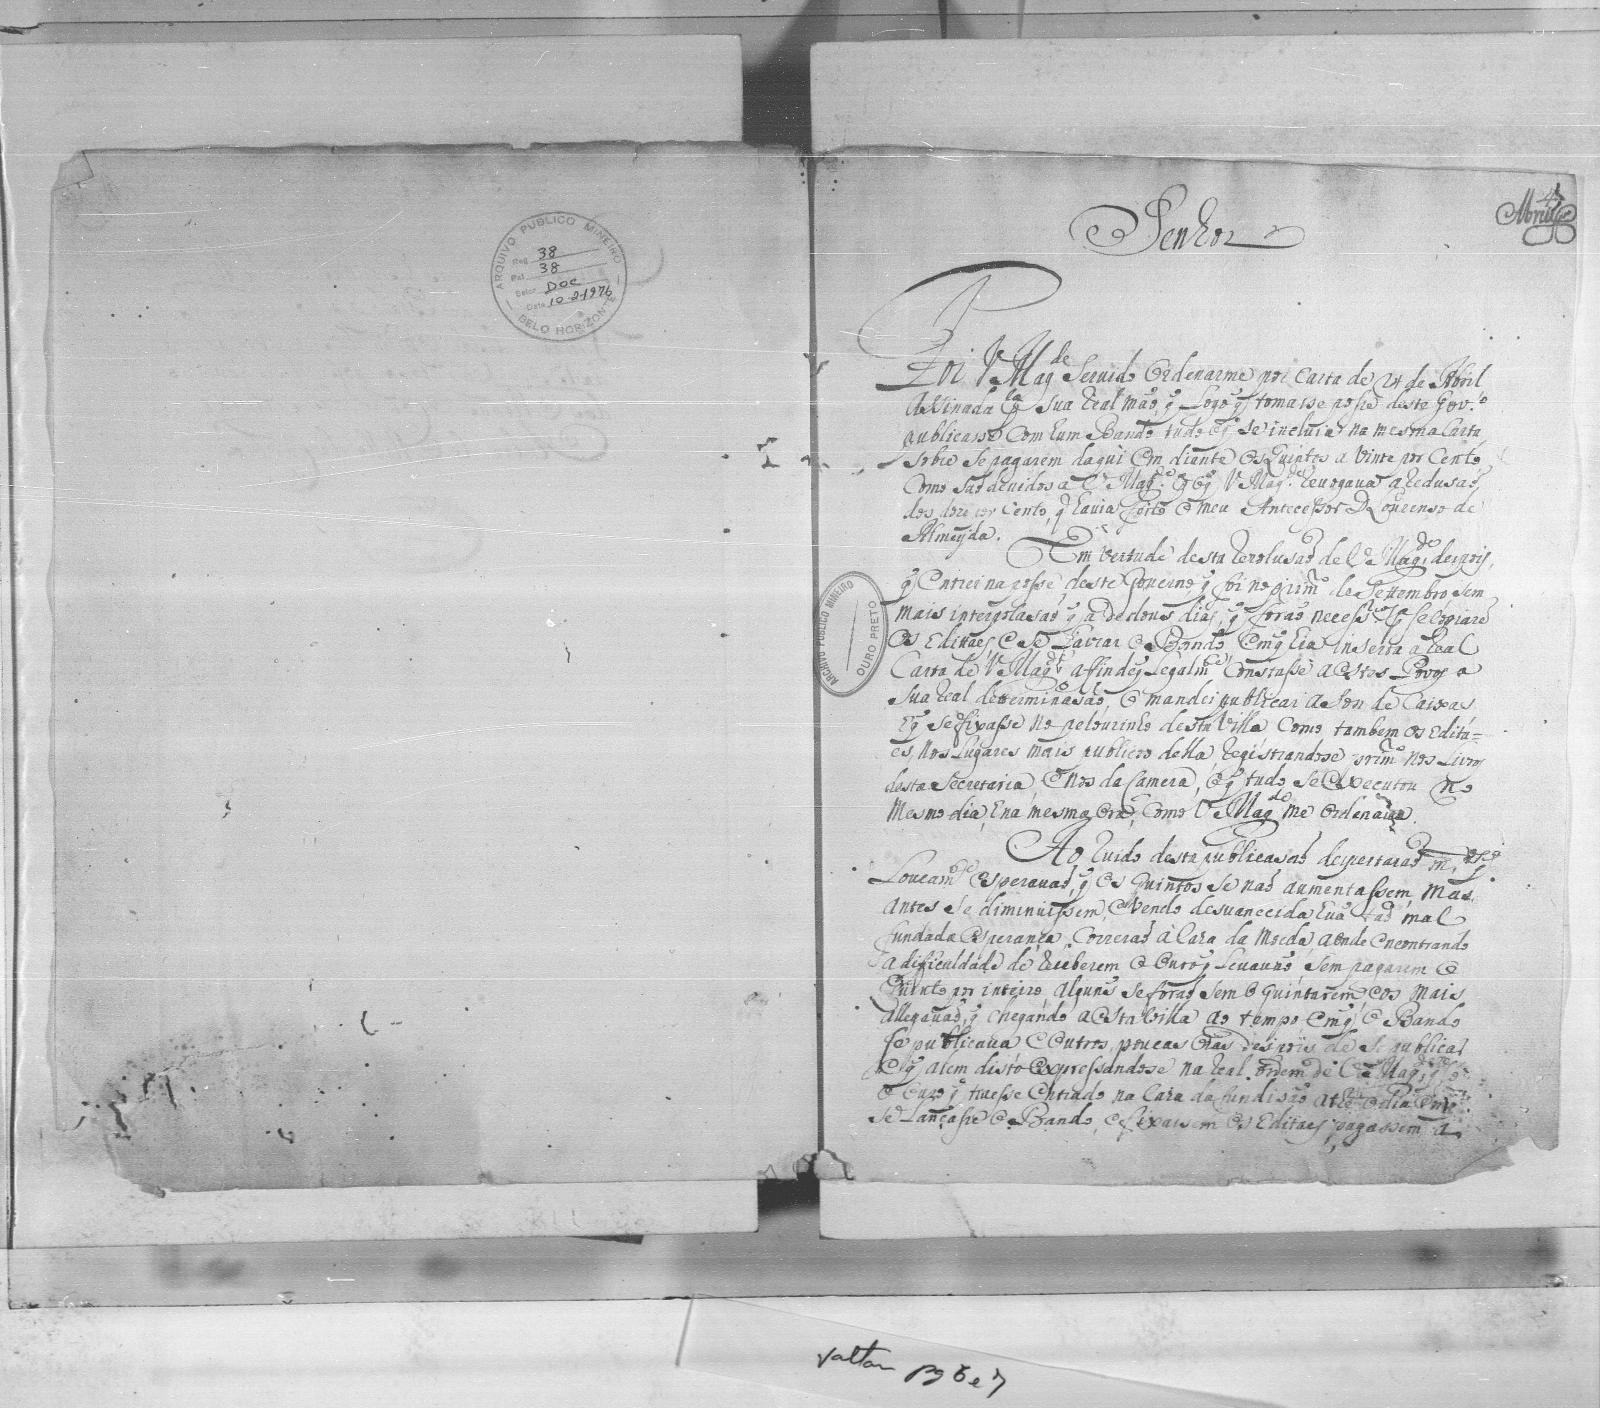 ARQUIVO PÚBLICO MINEIRO
Reg 38
Pat 38
Setor DOC
Data 10-2-1976
BELO HORIZONTE
Senhor
Foi V. Mag.de Servido Ordenarme por Carta de 24 de Abril
Assinada pla Sua Real mão, q Logo q tomasse posse deste Gov.o
publicasse Com hum Bando tudo o q se incluia na mesma Carta
sobre se pagarem daqui em diante os Quintos a Vinte por Cento
Como são devidos a V. Mag.de e q V. Mag.de Revogava a Redusaõ
dos doze por Cento, q havia feito o meu Antecessor D. Lourenso de
Almeyda.
Em Vertude desta Rezolusaõ de V. Mag.de depois,
q Entrei na posse deste Governo q foi no prim.ro de Settembro sem
mais interpolasaõ q a de dous dias, q foraõ necess.ros p.a se Copiarẽ
os Editaes, e se Lavrar o Bando, em q hia inserta a Real
Carta de V. Mag.de affim de q Legalm.te Constasse a estes Povos a
Sua Real determinasaõ, o mandei publicar a Son de Caixas
e q se fixasse no pelourinho desta Villa Como tambem os Edita=
es, nos Lugares mais publicos della, Registrandose prim.ro nos Livros
desta Secretaria, e nos da Camera, o q tudo se executou no
mesmo dia, e na mesma ora, Como V. Mag.de me Ordenava.
Ao Ruido desta publicasaõ despertaraõ m.tos q
Loucam.te esperavaõ, q os Quintos se naõ aumentassem, mas,
antes se diminuissem, e Vendo desvanecida hua taõ mal
fundada esperança, Correraõ à Caza da Moeda aonde encontrando
a dificuldade de Receberem o Ouro q Levavaõ, sem pagarem o
Quinto por inteiro, alguns se foraõ sem o Quintarem e os mais
allegavaõ, q chegando a esta Villa ao tempo em q o Bando
se publicava e outros, poucas oras depois de se publicar
e q alem disto expressandose na Real ordem de V. Mag.de q
o Ouro q tivesse entrado na Caza da fundisaõ athe o dia em q
se Lançasse o Bando, e fixassem os Editaes, pagassem a
ARCHIVO PUBLICO MINEIRO
OURO PRETO
faltam pg 6 e 7